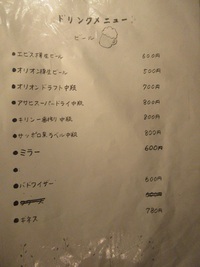 ドリンクメニュー
ビール
●エビス樽生ビール 600円
●オリオン樽生ビール 500円
●オリオンドラフト中瓶 700円
●アサヒスーパードライ中瓶 800円
●キリン一番搾り中瓶 800円
●サッポロ黒ラベル中瓶 800円
●ミラー 600円
●
●バドワイザー 600円
●
●ギネス 780円